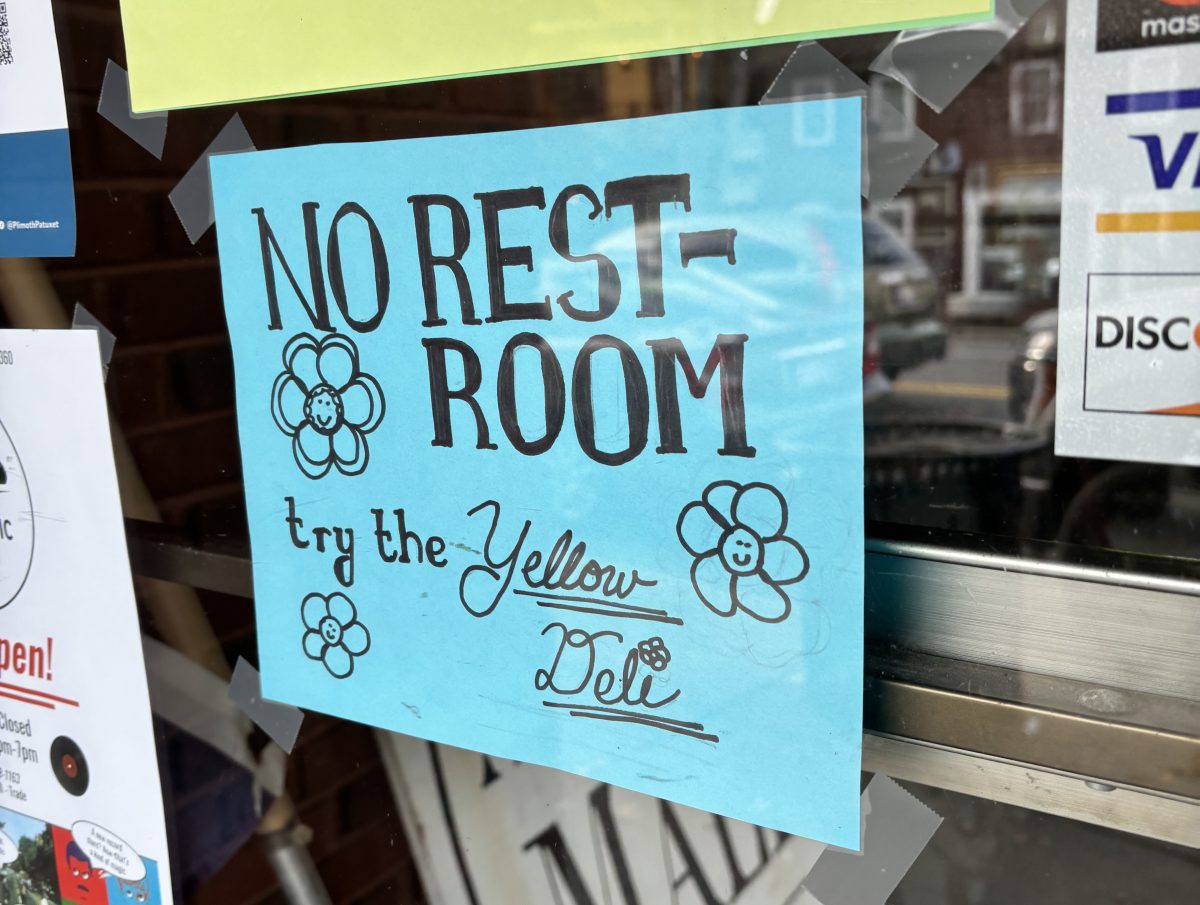 NO REST-
ROOM
try the Yellow
Deli
@PlimothPatuxet
360
IC
pen!
Closed
pm-7pm
-1163
- Trade
A new record
store? Now that's
a kind of magic.
mas
VI
DISC
MAD